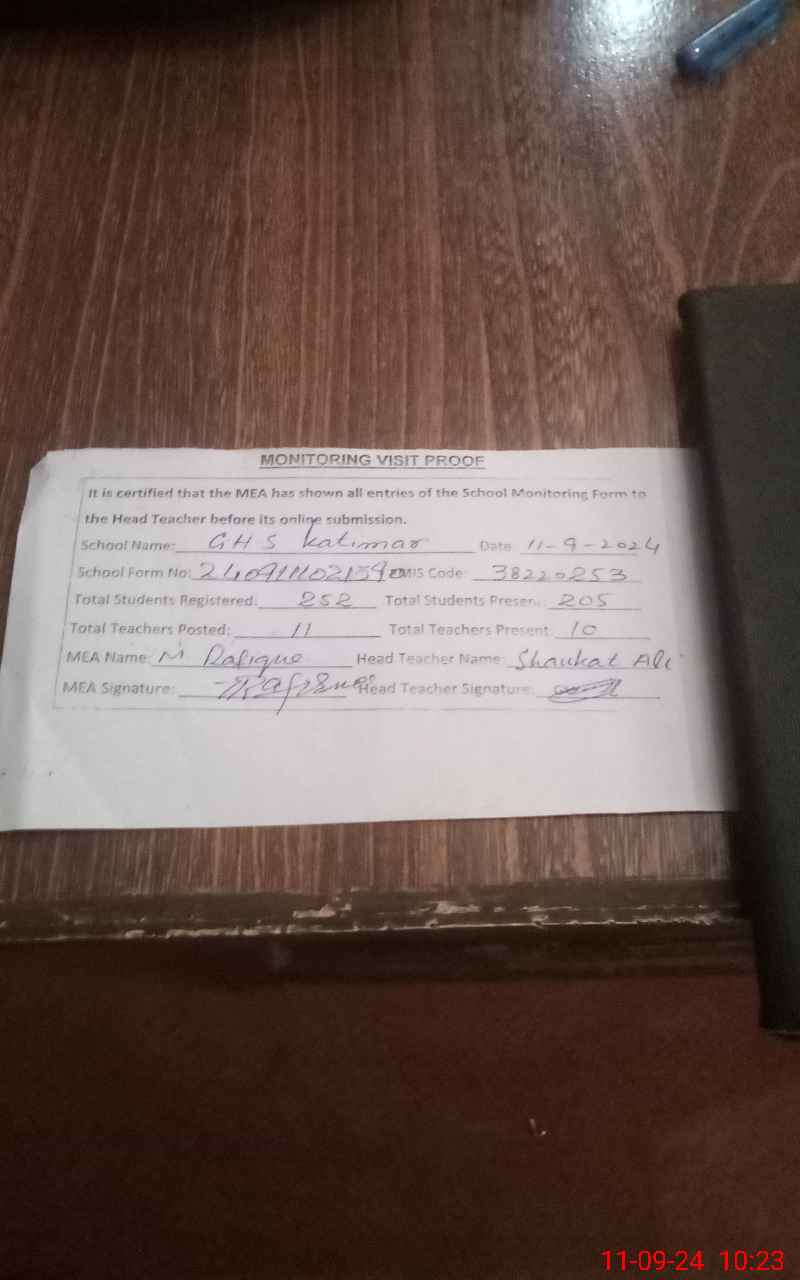 MONITORING VISIT PROOF
It is certified that the MEA has shown all entries of the School Monitoring Form to
the Head Teacher before its online submission.
School Name: GHS Katimar Date: 11-9-2024
School Form No: EMIS Code: 38220253
Total Students Registered: 252 Total Students Present: 205
Total Teachers Posted: 11 Total Teachers Present: 10
MEA Name: M Rafique Head Teacher Name: Shaukat Ali
MEA Signature: Rafique Head Teacher Signature:
11-09-24 10:23